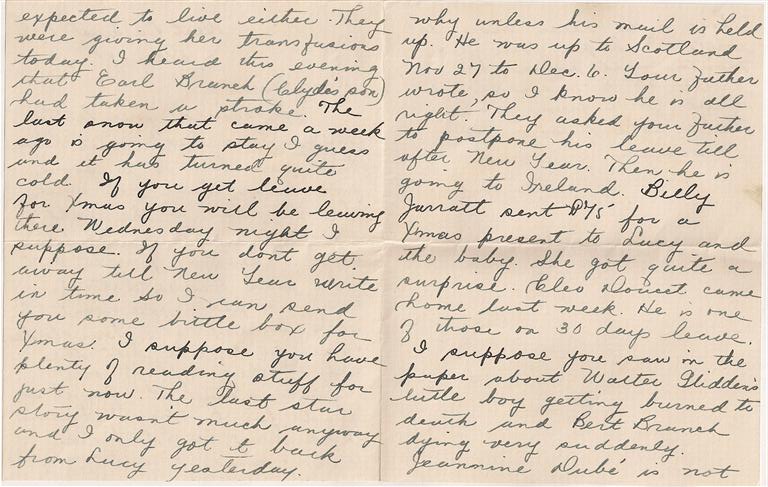 expected to live either. They
were giving her transfusions
today. I heard this evening
that Earl Branch (Clyde's son)
had taken a stroke. The
last snow that came a week
ago is going to stay I guess
and it has turned quite
cold. If you get leave
for Xmas you will be leaving
there Wednesday night I
suppose. If you dont get
away till New Year write
in time so I can send
you some little box for
Xmas. I suppose you have
plenty of reading stuff for
just now. The last star
story wasn't much anyway
and I only got it back
from Lucy yesterday.
why unless his mail is held
up. He was up to Scotland
Nov 27 to Dec. 6. Your father
wrote, so I know he is all
right. They asked your father
to postpone his leave till
after New Year. Then he is
going to Ireland. Billy
Jarratt sent $75 for a
Xmas present to Lucy and
the baby. She got quite a
surprise. Cleo Doucet came
home last week. He is one
of those on 30 days leave.
I suppose you saw in the
paper about Walter Glidden's
little boy getting burned to
death and Bert Branch
dying very suddenly.
Jeannine Dubé is not